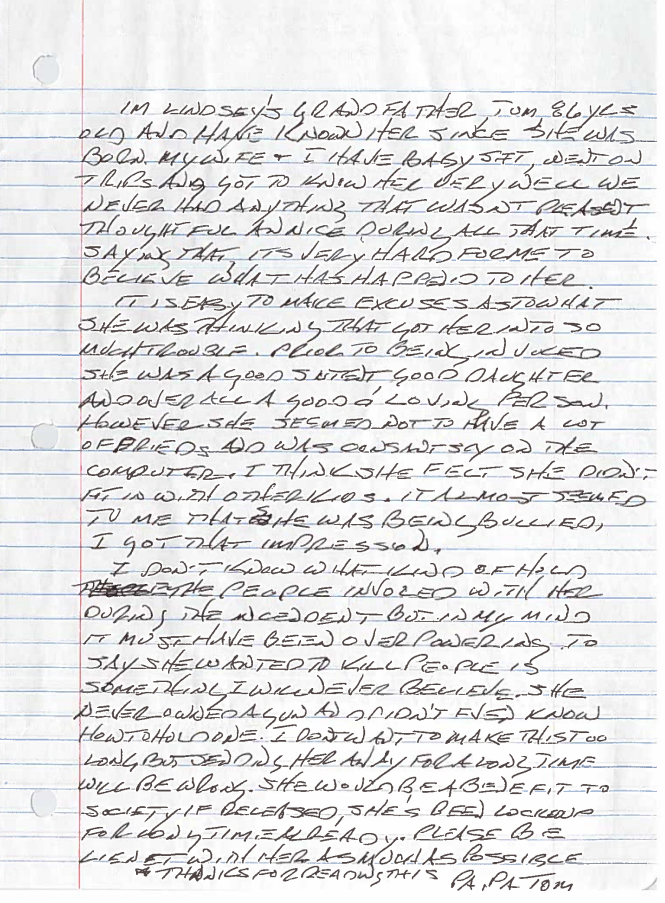 IM LINDSEY'S GRANDFATHER, TOM, 86 YRS
OLD AND HAVE KNOWN HER SINCE SHE WAS
BORN. MY WIFE + I HAVE BABY SET, WENT ON
TRIPS AND GOT TO KNOW HER VERY WELL WE
NEVER HAD ANYTHING THAT WASN'T PLEASENT
THOUGHTFUL AN NICE DURING ALL THAT TIME.
SAYING THAT, ITS VERY HARD FOR ME TO
BELIEVE WHAT HAS HAPPED TO HER.
IT IS EASY TO MAKE EXCUSES AS TO WHAT
SHE WAS THINKING THAT GOT HER INTO SO
MUCH TROUBLE. PRIOR TO BEING INVOLED
SHE WAS A GOOD STTENT, GOOD DAUGHTER
AND OVER ALL A GOOD & LOVING PERSON.
HOWEVER SHE SEEMED NOT TO HAVE A LOT
OF FRIEDS AND WAS CONSANTSLY ON THE
COMPUTER. I THINK SHE FELT SHE DIDN'T
FIT IN WITH OTHER KIDS. IT ALMOST SEEMED
TO ME THAT SHE WAS BEING BULLIED,
I GOT THAT IMPRESSION.
I DON'T KNOW WHAT KIND OF HOLD
THE PEOPLE INVOLED WITH HER
DURING THE INCEDENT BUT IN MY MIND
IT MUST HAVE BEEN OVER POWERING. TO
SAY SHE WANTED TO KILL PEOPLE IS
SOMETHING I WILL NEVER BELIEVE. SHE
NEVER OWNED A GUN AND DIDN'T EVEN KNOW
HOW TO HOLD ONE. I DONT WANT TO MAKE THIS TOO
LONG BUT SENDING HER AWAY FOR A LONG TIME
WILL BE WRONG. SHE WOULD BE A BENEFIT TO
SOCIETY IF RELEASED, SHE'S BEEN LOCKED UP
FOR LONG TIME ALREADY. PLEASE BE
LIENET WITH HER AS MUCH AS POSSIBLE
* THANKS FOR READING THIS PA, PA TOM